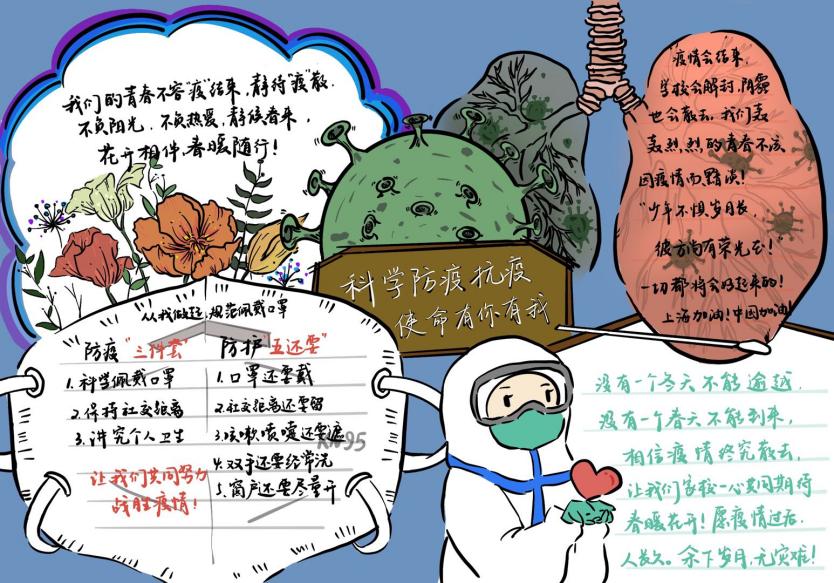 我们的青春不容"疫"结束,静待"疫"散.
不负阳光.不负热爱.静候春来,
花开相伴,春暖随行!
科学防疫抗疫
使命有你有我
疫情会结束.
学校会解封,阴霾
也会散去.我们轰
轰烈烈的青春不该
因疫情而黯淡!
"少年不惧岁月长,
彼方尚有荣光在!
一切都将会好起来的!
上海加油!中国加油!
从我做起,规范佩戴口罩
防疫"三件套"
1.科学佩戴口罩
2.保持社交距离
3.讲究个人卫生
让我们共同努力
战胜疫情!
防护"五还要"
1.口罩还要戴
2.社交距离还要留
3.咳嗽喷嚏还要遮
4.双手还要经常洗
5.窗户还要尽量开
KN95
没有一个冬天不能逾越.
没有一个春天不能到来,
相信疫情终究散去,
让我们家校一心共同期待
春暖花开!愿疫情过后.
人长久。余下岁月,无灾难!